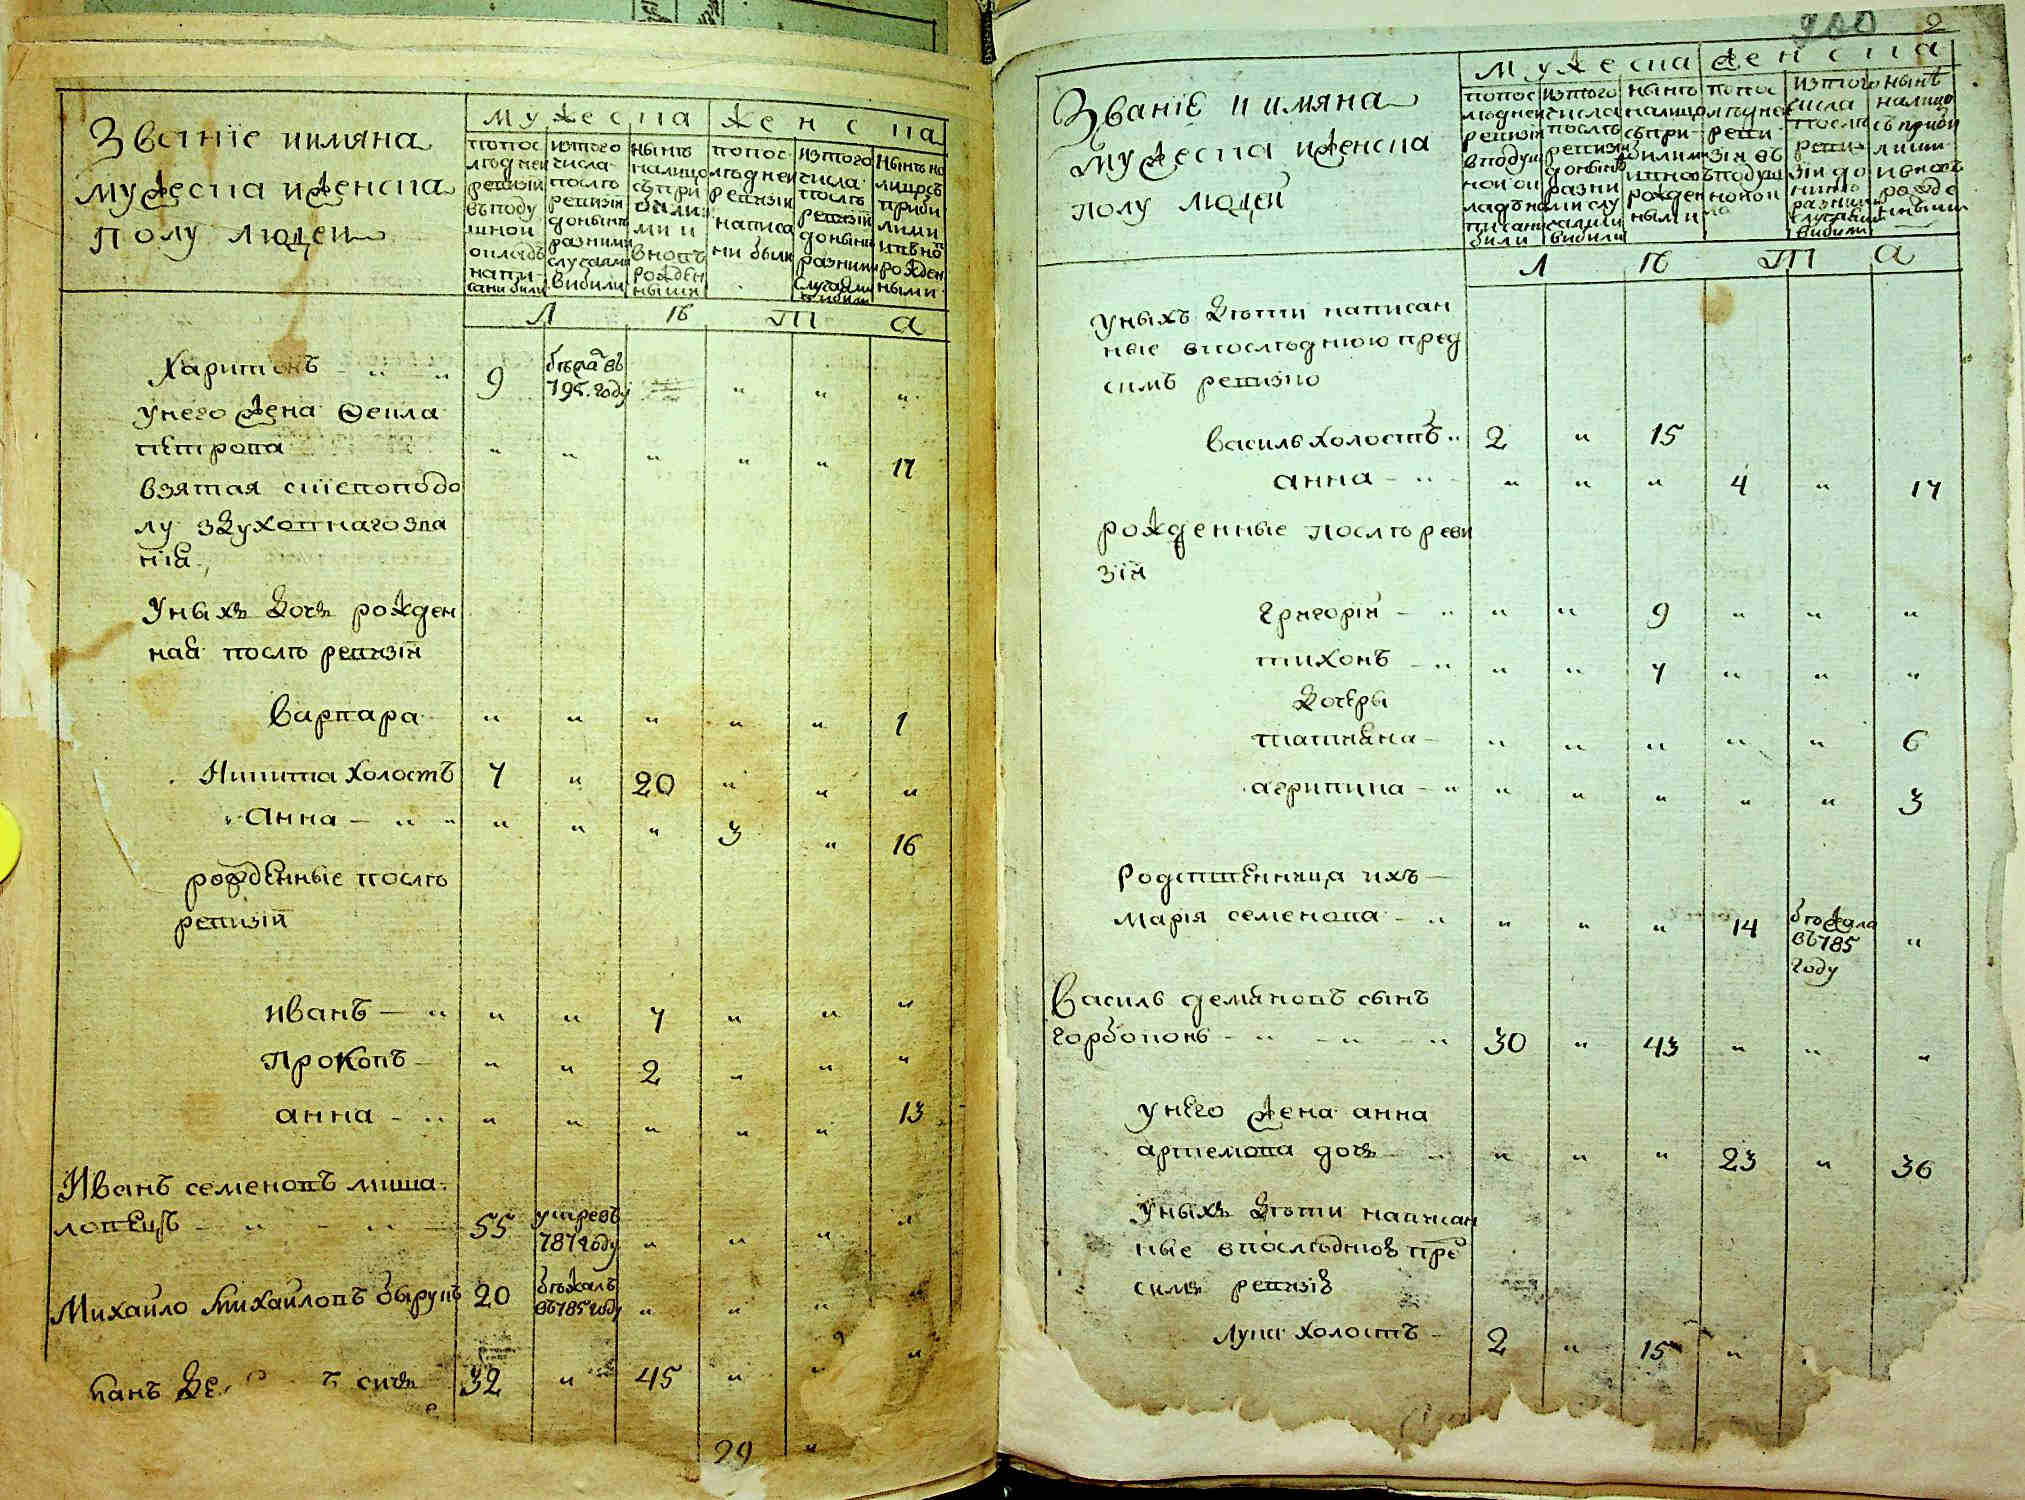 Званіе и имяна
мужеска и женска
полу людей
мужеска женска
попос
лѣдней
ревизіи
въ поду
шной
окладъ
напи-
саны были
изтого
числа
послѣ
ревизіи
донынѣ
разными
случаями
выбыли
нынѣ
налицо
съ при
былы
ми и
вновь
рожден
ными
попос
лѣдней
ревизіи
написа
ны были
изтого
числа
послѣ
ревизіи
донынѣ
разными
случаями
выбыли
нынѣ на
лицо съ
прибы
лыми
и вно
рожден
ными
Л ѣ т а
Харитонъ 9 бѣжа въ
795. году
у него жена Фекла
петрова 17
взятая сшепоподо
лу здуховнаго зва
нія
у ныхъ дочь рожден
ная послѣ ревизіи
Варвара 1
Никита холостъ 7 20
Анна 3 16
рожденные послѣ
ревизіи
иванъ 7
Прокопъ 2
анна 13
Иванъ семеновъ миша
ловецъ 55 умре въ
787 году
Михайло Михайловъ бырукъ 20 бѣжалъ
въ 785 году
сынъ 32 45
29
2
Званіе и имяна
мужеска и женска
полу людей
мужеска женска
попос
лѣдней
ревизіи
в подуш
ной ок
ладъ на
писаны
были
изтого
числа
послѣ
ревизіи
донынѣ
разны
ми слу
чаями
выбыли
нынѣ
налицо
съ при-
былими
и вновь
рожден
ными
попос
лѣдней
реви-
зіи въ
подуш
ной ок
изтого
числа
послѣ
реви-
зіи до
нынѣ
разными
случаями
выбыли
нынѣ
налицо
съ прибы
лыми
и вновь
рожде
нными
Л ѣ т а
у ныхъ дѣти написан
ные в последнюю пред
симъ ревизію
василь холостъ 2 15
анна 4 17
рожденные послѣ реви
зіи
григорій 9
тихонъ 7
дочеры
татияна 6
агрипина 3
Родственница ихъ
марія семенова 14 бѣжала
въ 785
году
Василь демяновъ сынъ
горбоконь 30 43
у него жена анна
артемова дочь 23 36
у ныхъ дѣти написан
ные в последнюю пре
симъ ревизію
лука холостъ 2 15